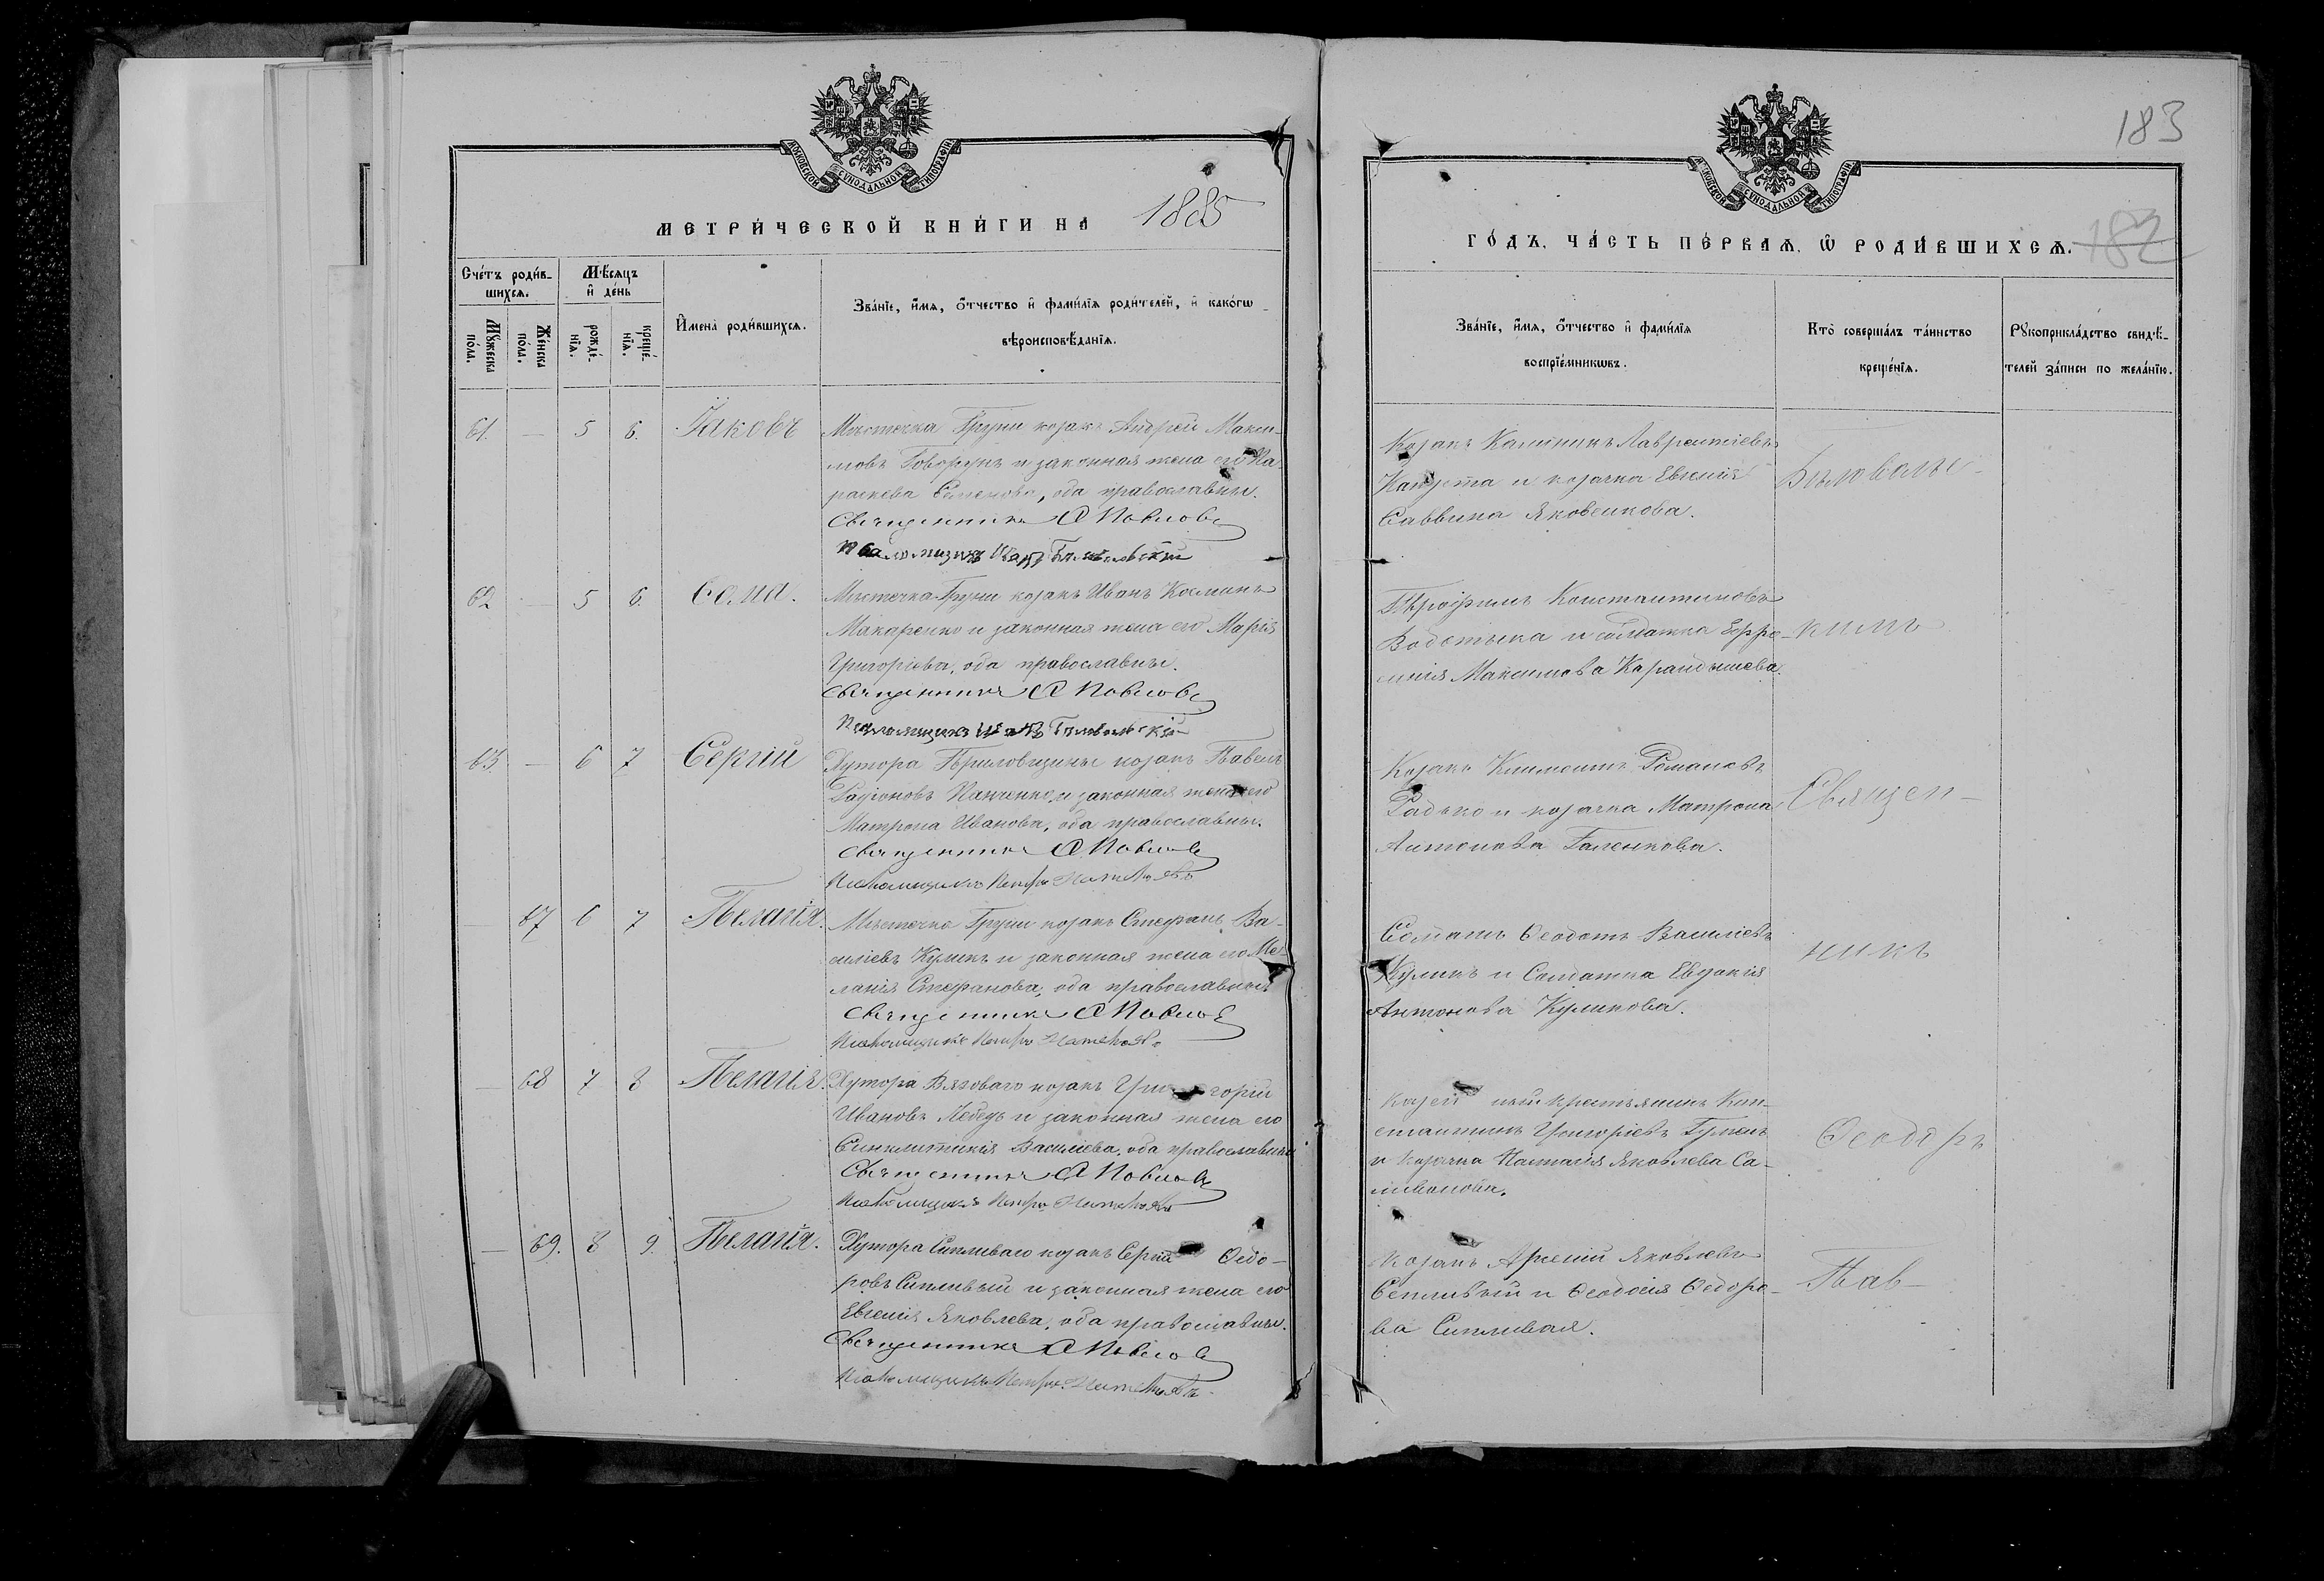 МОСКОВСКОЙ СУНОДАЛЬНОЙ ТИПОГРАФІИ
МЕТРИ́ЧЕСКОЙ КНИ́ГИ НА 1885
Сче́тъ роди́вшихся.
Мѣ́сяцъ и де́нь
Му́жеска по́ла.
Же́нска по́ла.
рожде́нїя.
креще́нїя.
И҆мена̀ роди́вшихся.
Зва́нїе, и҆́мя, ѻ҆́тчество и҆ фами́лїя роди́телей, и҆ како́гѡ
вѣроисповѣ́данїя.
61. — 5 6. Іаковъ
Мѣстечка Груни козакъ Андрей Макси-
мовъ Говорунъ и законная жена его Па-
раскева Семенова, оба православны.
Священникъ Павловъ
Псаломщикъ
62 — 5 6. Сома.
Мѣстечка Груни козакъ Иванъ Косминъ
Макаренко и законная жена его Марія
Григоріева, оба православны.
Священникъ Павловъ
Псаломщикъ
63. — 6 7 Сергій
Хутора козакъ Павелъ
Панченко и законная жена его
Матрона Иванова, оба православны.
Священникъ Павловъ
Псаломщикъ Петръ
— 67 6 7 Пелагія.
Мѣстечка Груни козакъ Стефанъ Ва-
силіевъ Куликъ и законная жена его Ме-
ланія Стефанова, оба православны.
Священникъ Павловъ
Псаломщикъ Петръ
— 68 7 8 Пелагія.
Хутора Вязоваго козакъ Григорій
Ивановъ Лебедь и законная жена его
Синклитикія Василіева, оба православны
Священникъ Павловъ
Псаломщикъ Петръ
— 69. 8 9. Пелагія.
Хутора Сипливаго козакъ Сергій Ѳедо-
ровъ Сипливый и законная жена его
Евгенія Яковлева, оба православны.
Священникъ Павловъ
Псаломщикъ Петръ
183
МОСКОВСКОЙ СУНОДАЛЬНОЙ ТИПОГРАФІИ
ГО́ДЪ, ЧА́СТЬ ПЕ́РВАЯ, Ѡ҆ РОДИ́ВШИХСЯ.
182
Зва́нїе, и҆́мя, ѻ҆́тчество и҆ фами́лїя
воспрїе́мникѡвъ.
Кто̀ соверша́лъ та́инство
креще́нїя.
Рꙋкоприкла́дство свидѣ́-
телей за́писи по жела́нїю.
Козакъ Калиникъ Лаврентіевъ
Капуста и козачка Евгенія
Саввина Яковенкова.
Трофимъ Константиновъ
и солдатка Евфро-
синія Максимова Карандышева.
кимъ
Козакъ Климентъ Романовъ
Радько и козачка Матрона
Антонова Галенкова.
Священ-
Солдатъ Ѳеодотъ Василіевъ
Куликъ и Солдатка Евдокія
Антонова Куликова.
никъ
казен ный крестьянинъ Кон-
стантинъ Григоріевъ
и козачка Наталія Яковлева Се-
ливанова.
Ѳеодоръ
Козакъ Арсеній Яковлевъ
Сепливый и Ѳеодосія Ѳедоро-
ва Сипливая.
Пав-